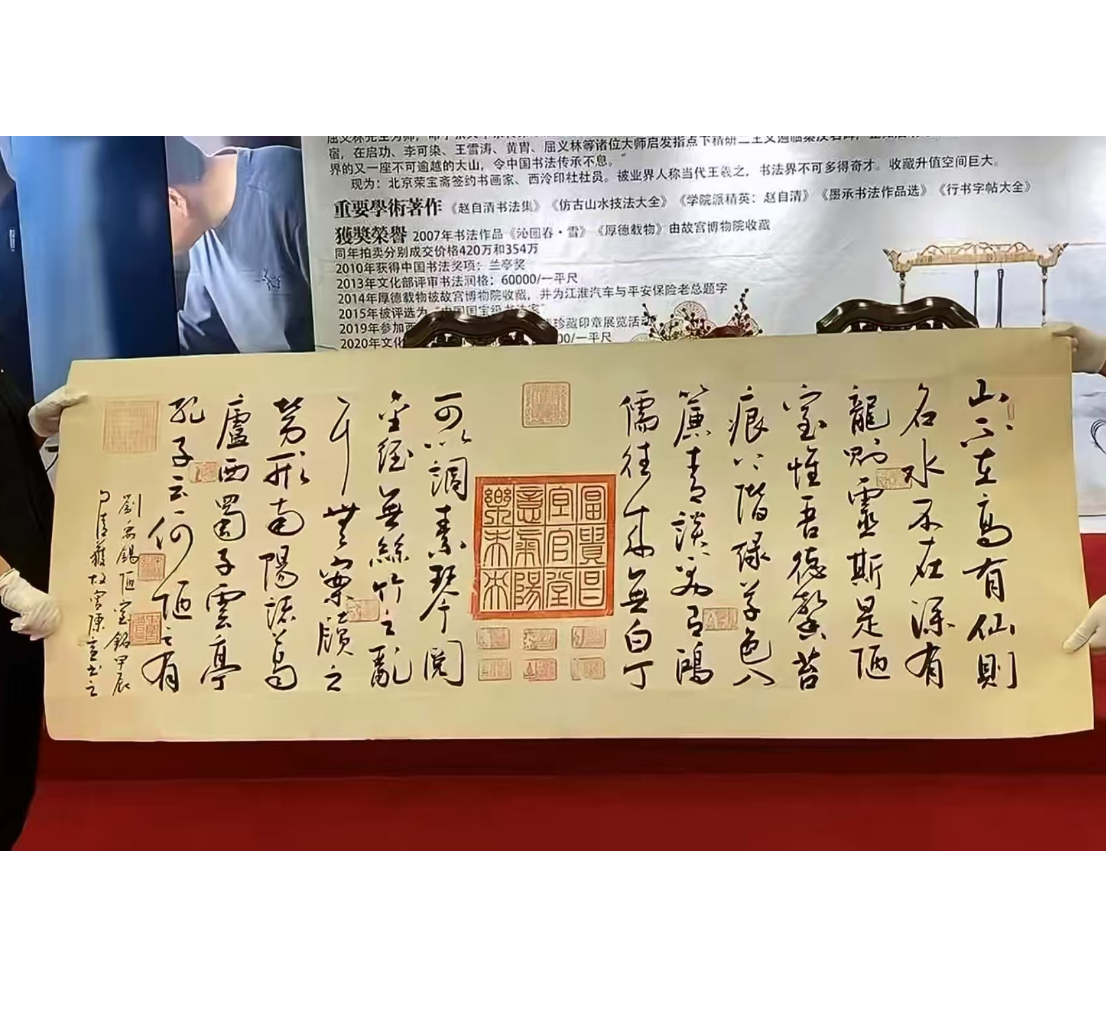 宿，在启功、李可染、王雪涛、黄胄、屈义林等诸位大师启发指点下精研二王
界的又一座不可逾越的大山，令中国书法传承不息。
现为：北京荣宝斋签约书画家、西泠印社社员。被业界人称当代王羲之，书法界不可多得奇才。收藏升值空间巨大。
重要學術著作《赵自清书法集》《仿古山水技法大全》《学院派精英：赵自清》《墨承书法作品选》《行书字帖大全》
獲獎榮譽 2007年书法作品《沁园春·雪》《厚德载物》由故宫博物院收藏
同年拍卖分别成交价格420万和354万
2010年获得中国书法奖项：兰亭奖
2013年文化部评审书法润格：60000/一平尺
2014年厚德载物被故宫博物院收藏，并为江淮汽车与平安保险老总题字
2015年被评选为"中国国宝级书法家"
2019年参加西 珍藏印章展览活动
2020年文化 00/一平尺
山不在高有仙則
名水不在深有
龍則靈斯是陋
室惟吾德馨苔
痕上階绿草色入
簾青談笑有鴻
儒往来無白丁
富貴昌
宜官堂
意氣陽
樂未央
可以調素琴閲
金經無絲竹之亂
耳無案牘之
勞形南陽諸葛
廬西蜀子雲亭
孔子云何陋之有
劉禹錫陋室銘甲辰